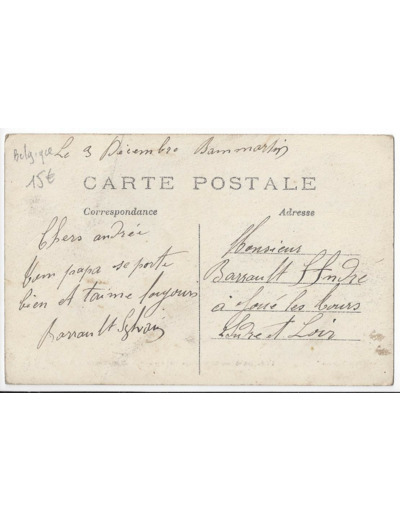 Belgique
15€
Le 3 Décembre Dammartin
CARTE POSTALE
Correspondance
Adresse
Chers andrée
papa se porte
bien et t'aime toujours
Barrault Sylvain
Monsieur
Barrault André
à Joué les tours
Indre et Loir